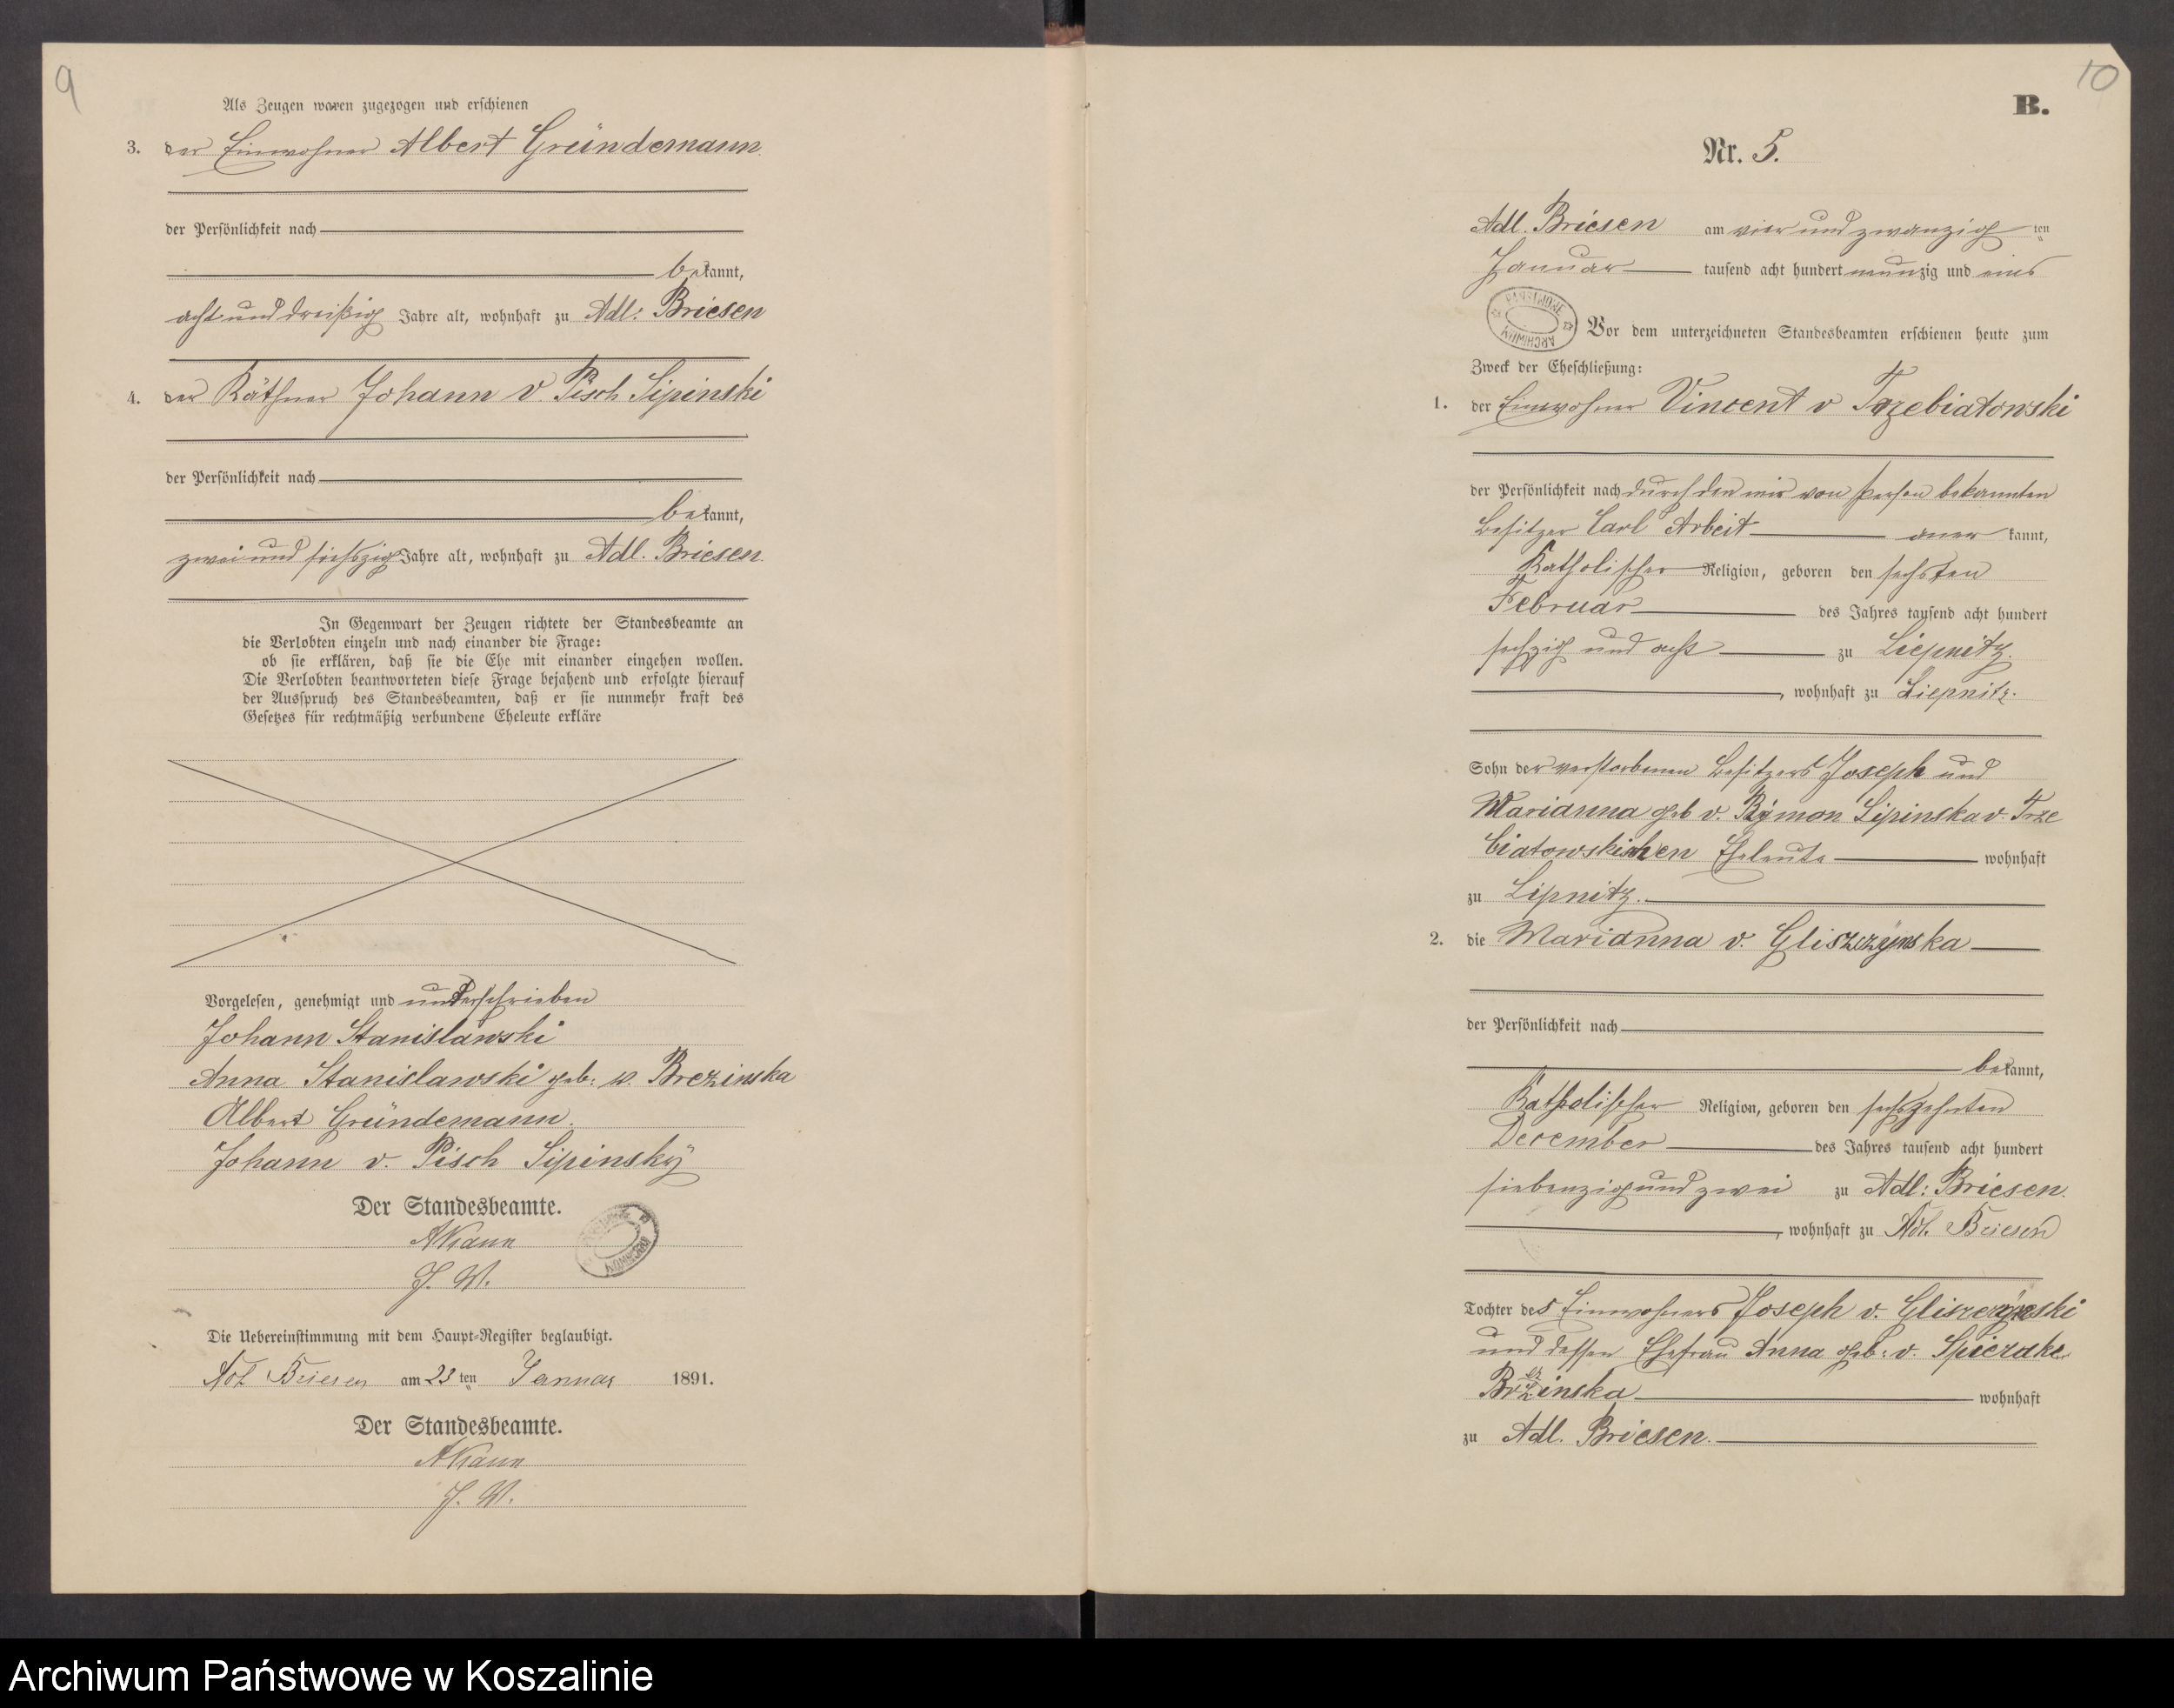 9
Als Zeugen waren zugezogen und erschienen
3. der Einwohner Albert Gründemann
der Persönlichkeit nach
bekannt,
acht und dreißig Jahre alt, wohnhaft zu Adl: Briesen
4. der Käthner Johann v Pisch Lipinski
der Persönlichkeit nach
bekannt,
zwei und sechszig Jahre alt, wohnhaft zu Adl. Briesen.
In Gegenwart der Zeugen richtete der Standesbeamte an
die Verlobten einzeln und nach einander die Frage:
ob sie erklären, daß sie die Ehe mit einander eingehen wollen.
Die Verlobten beantworteten diese Frage bejahend und erfolgte hierauf
der Ausspruch des Standesbeamten, daß er sie nunmehr kraft des
Gesetzes für rechtmäßig verbundene Eheleute erkläre
Vorgelesen, genehmigt und unterschrieben
Johann Stanislawski
Anna Stanislawski geb: v. Brezinska
Albert Gründemann.
Johann v. Pisch Lipinsky
Der Standesbeamte.
J. V.
Die Uebereinstimmung mit dem Haupt-Register beglaubigt.
Adl Briesen am 23 ten Januar 1891.
Der Standesbeamte.
J. V.
10
B.
Nr. 5.
Adl. Briesen am vier und zwanzig ten
Januar tausend acht hundert neunzig und eins
PAŃSTWOWE ARCHIWUM
Vor dem unterzeichneten Standesbeamten erschienen heute zum
Zweck der Eheschließung:
1. der Einwohner Vincent v Trzebiatowski
der Persönlichkeit nach durch den mir von Person bekannten
Besitzer Carl Arbeit aner kannt,
Katholischer Religion, geboren den sechsten
Februar des Jahres tausend acht hundert
sechzig und acht zu Liepnitz.
, wohnhaft zu Liepnitz.
Sohn der verstorbenen Besitzers Joseph und
Marianna geb v. Rymon Lipinska v. Trze
biatowskischen Eheleute wohnhaft
zu Lipnitz.
2. die Marianna v. Gliszczynska
der Persönlichkeit nach
bekannt,
Katholischer Religion, geboren den sechszehnten
December des Jahres tausend acht hundert
siebenzig und zwei zu Adl: Briesen.
, wohnhaft zu Adl. Briesen
Tochter des Einwohners Joseph v. Gliszczynski
und dessen Ehefrau Anna geb: v. Spiczake
Brzezinska wohnhaft
zu Adl. Briesen.
Archiwum Państwowe w Koszalinie